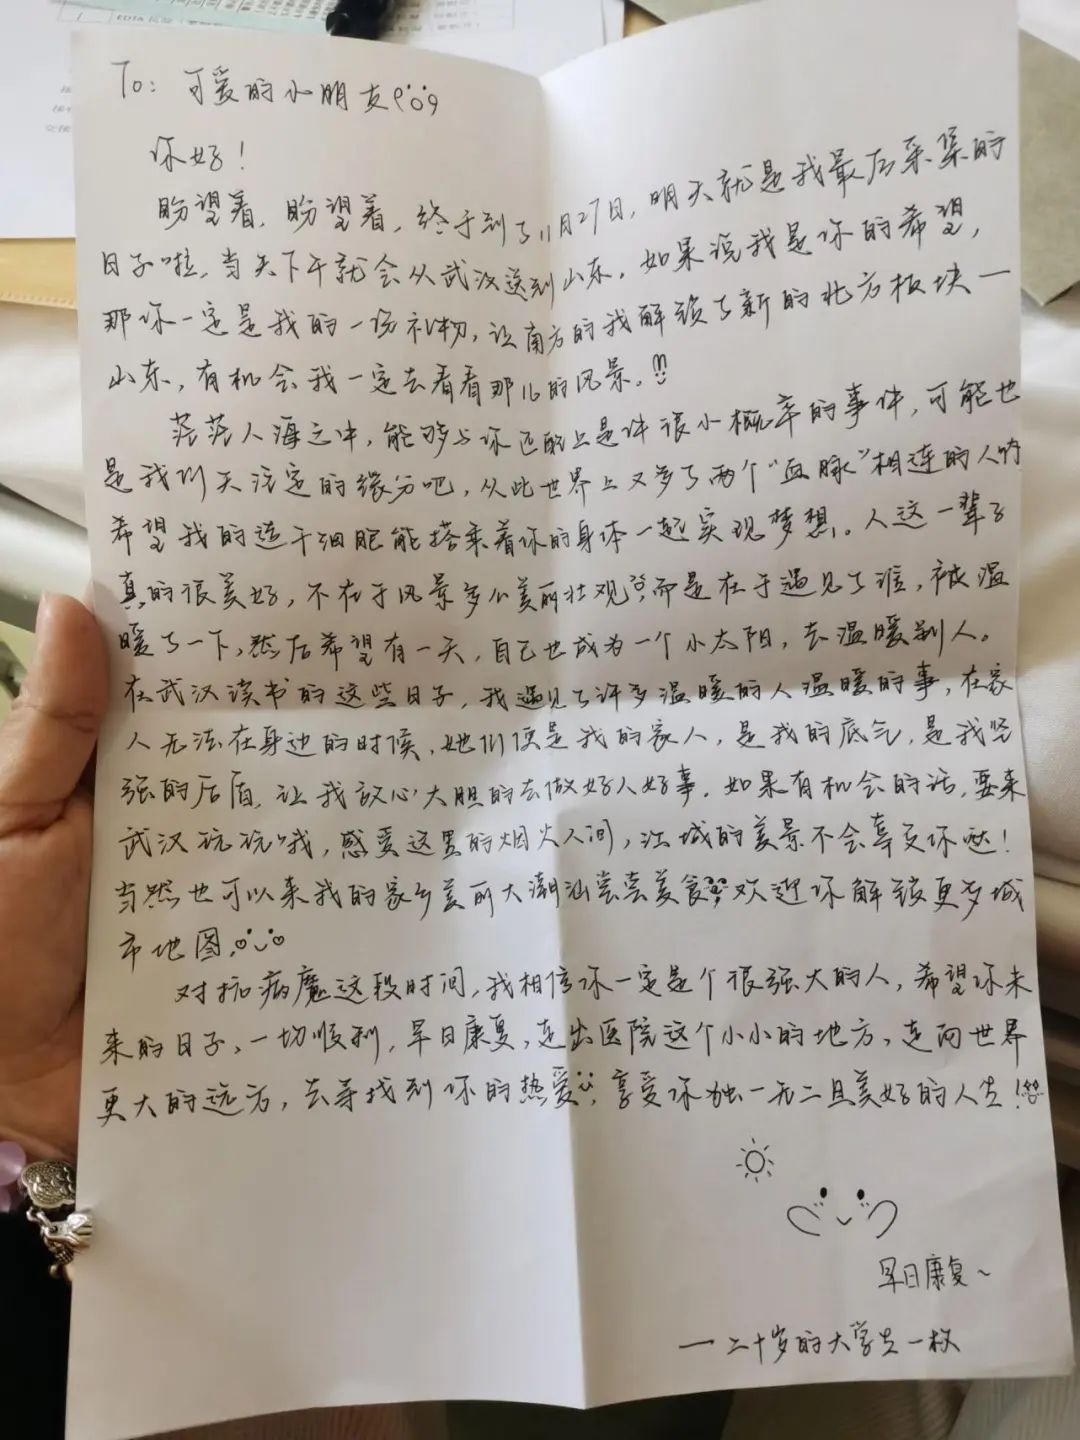 EDTA
To: 可爱的小朋友
你好!
盼望着,盼望着,终于到了11月27日,明天就是我最后采集的
日子啦,当天下午就会从武汉送到山东。如果说我是你的希望,
那你一定是我的一份礼物,让南方的我解锁了新的北方板块一
山东,有机会我一定去看看那儿的风景。!!
茫茫人海之中,能够与你匹配上是件很小概率的事件,可能也
是我们天注定的缘分吧,从此世界上又多了两个“血脉”相连的人
希望我的造干细胞能搭乘着你的身体一起实现梦想。人这一辈子
真的很美好,不在于风景多么美丽壮观,而是在于遇见了谁,被温
暖了一下,然后希望有一天,自己也成为一个小太阳,去温暖别人。
在武汉读书的这些日子,我遇见了许多温暖的人温暖的事,在家
人无法在身边的时候,她们便是我的家人,是我的底气,是我坚
强的后盾,让我放心大胆的去做好人好事。如果有机会的话,要来
武汉玩玩哦,感受这里的烟火人间,江城的美景不会辜负你哒!
当然也可以来我的家乡美丽大潮汕尝尝美食,欢迎你解锁更多城
市地图。
对抗病魔这段时间,我相信你一定是个很强大的人,希望你未
来的日子,一切顺利,早日康复,走出医院这个小小的地方,走向世界
更大的远方,去寻找到你的热爱,享受你独一无二且美好的人生!
早日康复~
一二十岁的大学生一枚